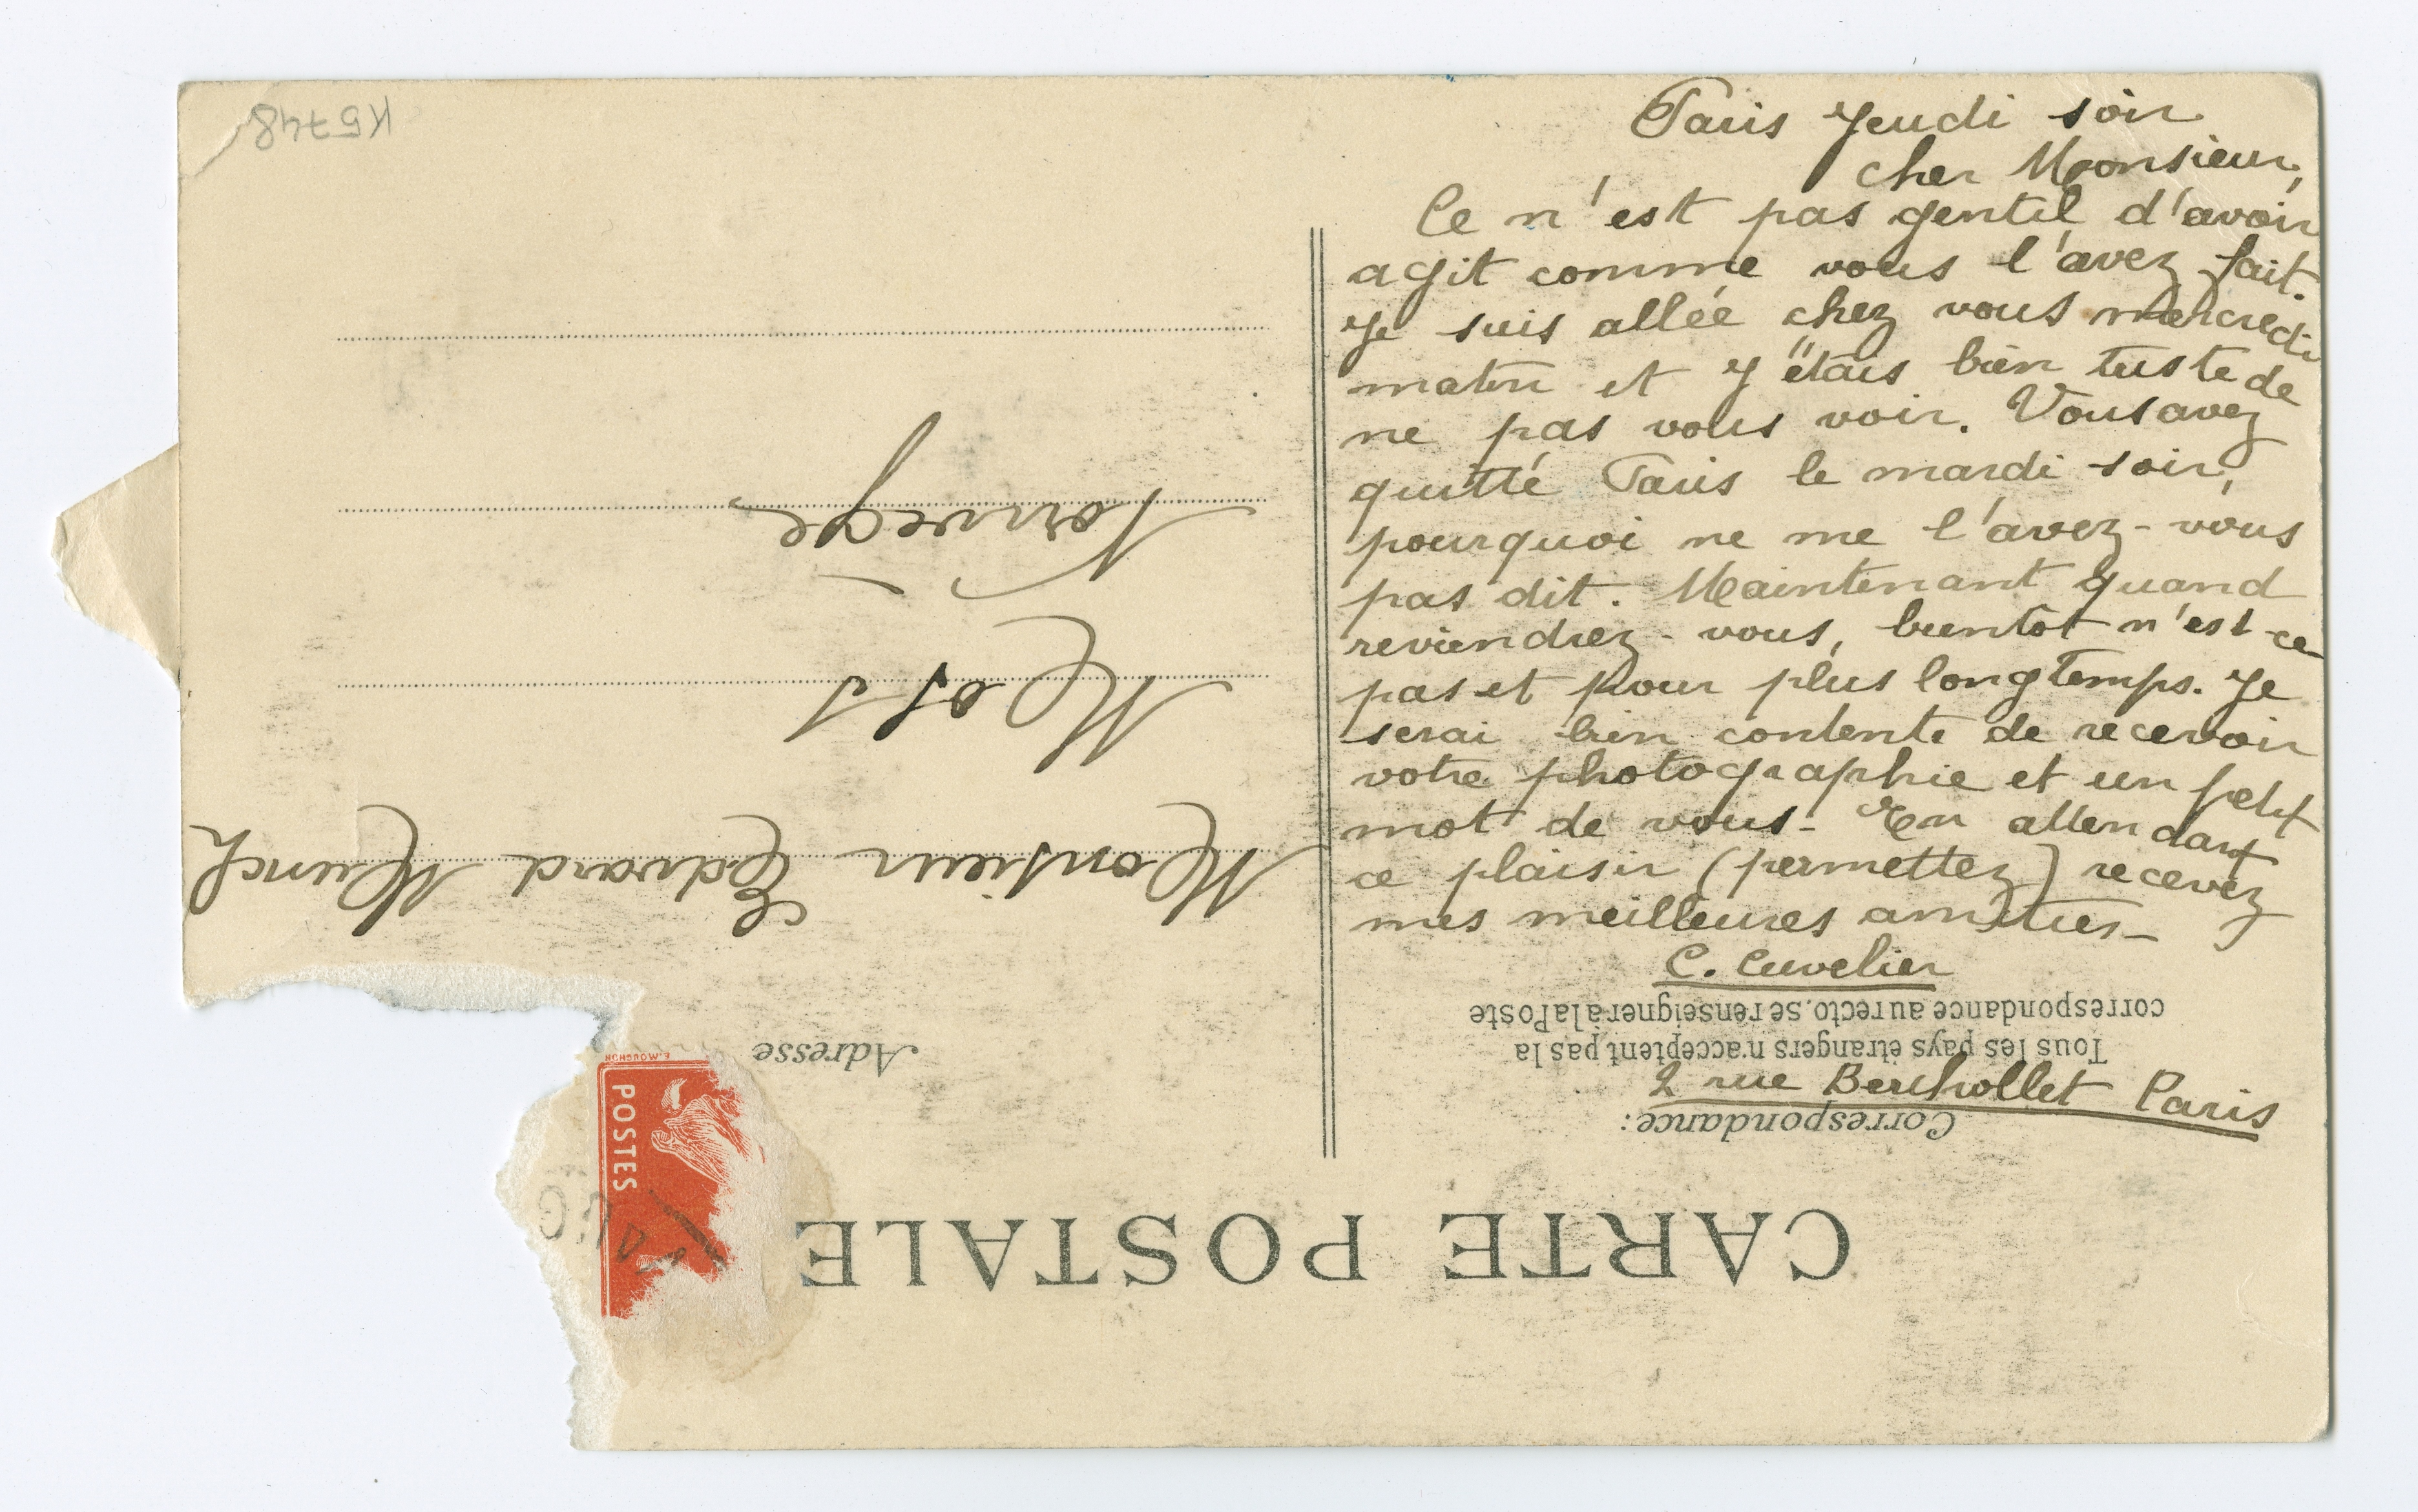 Paris Jeudi soir
cher Monsieur,
Ce n'est pas gentil d'avoir
agit comme vous l'avez fait.
Je suis allée chez vous mercredi
matin et j'étais bien triste de
ne pas vous voir. Vous avez
quitté Paris le mardi soir,
pourquoi ne me l'avez-vous
pas dit. Maintenant quand
reviendrez-vous, bientot n'est-ce
pas et pour plus longtemps. Je
serai bien contente de recevoir
votre photographie et un petit
mot de vous - En attendant
ce plaisir (permettez) recevez
mes meilleures amitiés -
C. Cuvelier
2 rue Berthollet Paris
CARTE POSTALE
Correspondance:
Tous les pays étrangers n'acceptent pas la
correspondance au recto. Se renseigner à la Poste
Adresse
Monsieur Edvard Munch
Moss
Norvège
K5748
POSTES
E. MOUCHON